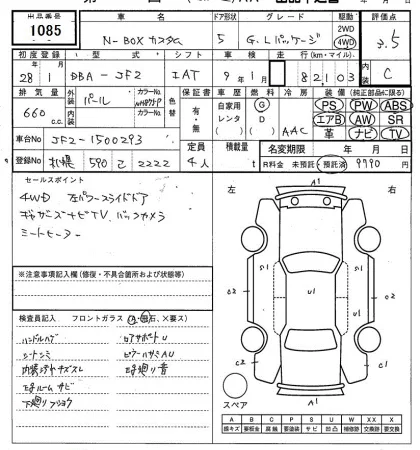 出品番号 車名 ドア形状 グレード 駆動 評価点
1085 N-BOXカスタム 5 G.Lパッケージ 2WD 4WD 3.5
初度登録 型式 シフト 車検 走行(km・マイル) 内装
28 1 DBA-JF2 IAT 9年1月 82,103 C
排気量 外装 パール カラーNo. 色替 保証書 車歴 燃料 冷房 装備(純正部品に限る)
660 c.c. 内装 カラーNo. 有・無 自家用 レンタ G D AAC PS PW ABS
エアB AW SR
革 ナビ TV
車台No JF2-1500293 定員 積載量 名変期限 年 月 日
登録No 札幌 590 2222 4人 t R料金 未預託・預託済 9790
セールスポイント
4WD 左パワースライドドア
ギャザズナビTV、バックカメラ
シートヒーター
※注意事項記入欄(修復・不具合箇所および状態等)
検査員記入 フロントガラス(A・飛石、×要ス)
ハンドルハゲ ロアサポートU
シートシミ
内装汚れキズL 下廻り音
ルームサビ
下廻りフショク
左 右
A1
S1 S1
C2 U1 U1 C2
C2 C1
A1
スペア
A B C P S U W X XX
線キズ 要板金 腐蝕 要塗装 サビ 凹凸 補修跡 要交換 交換跡